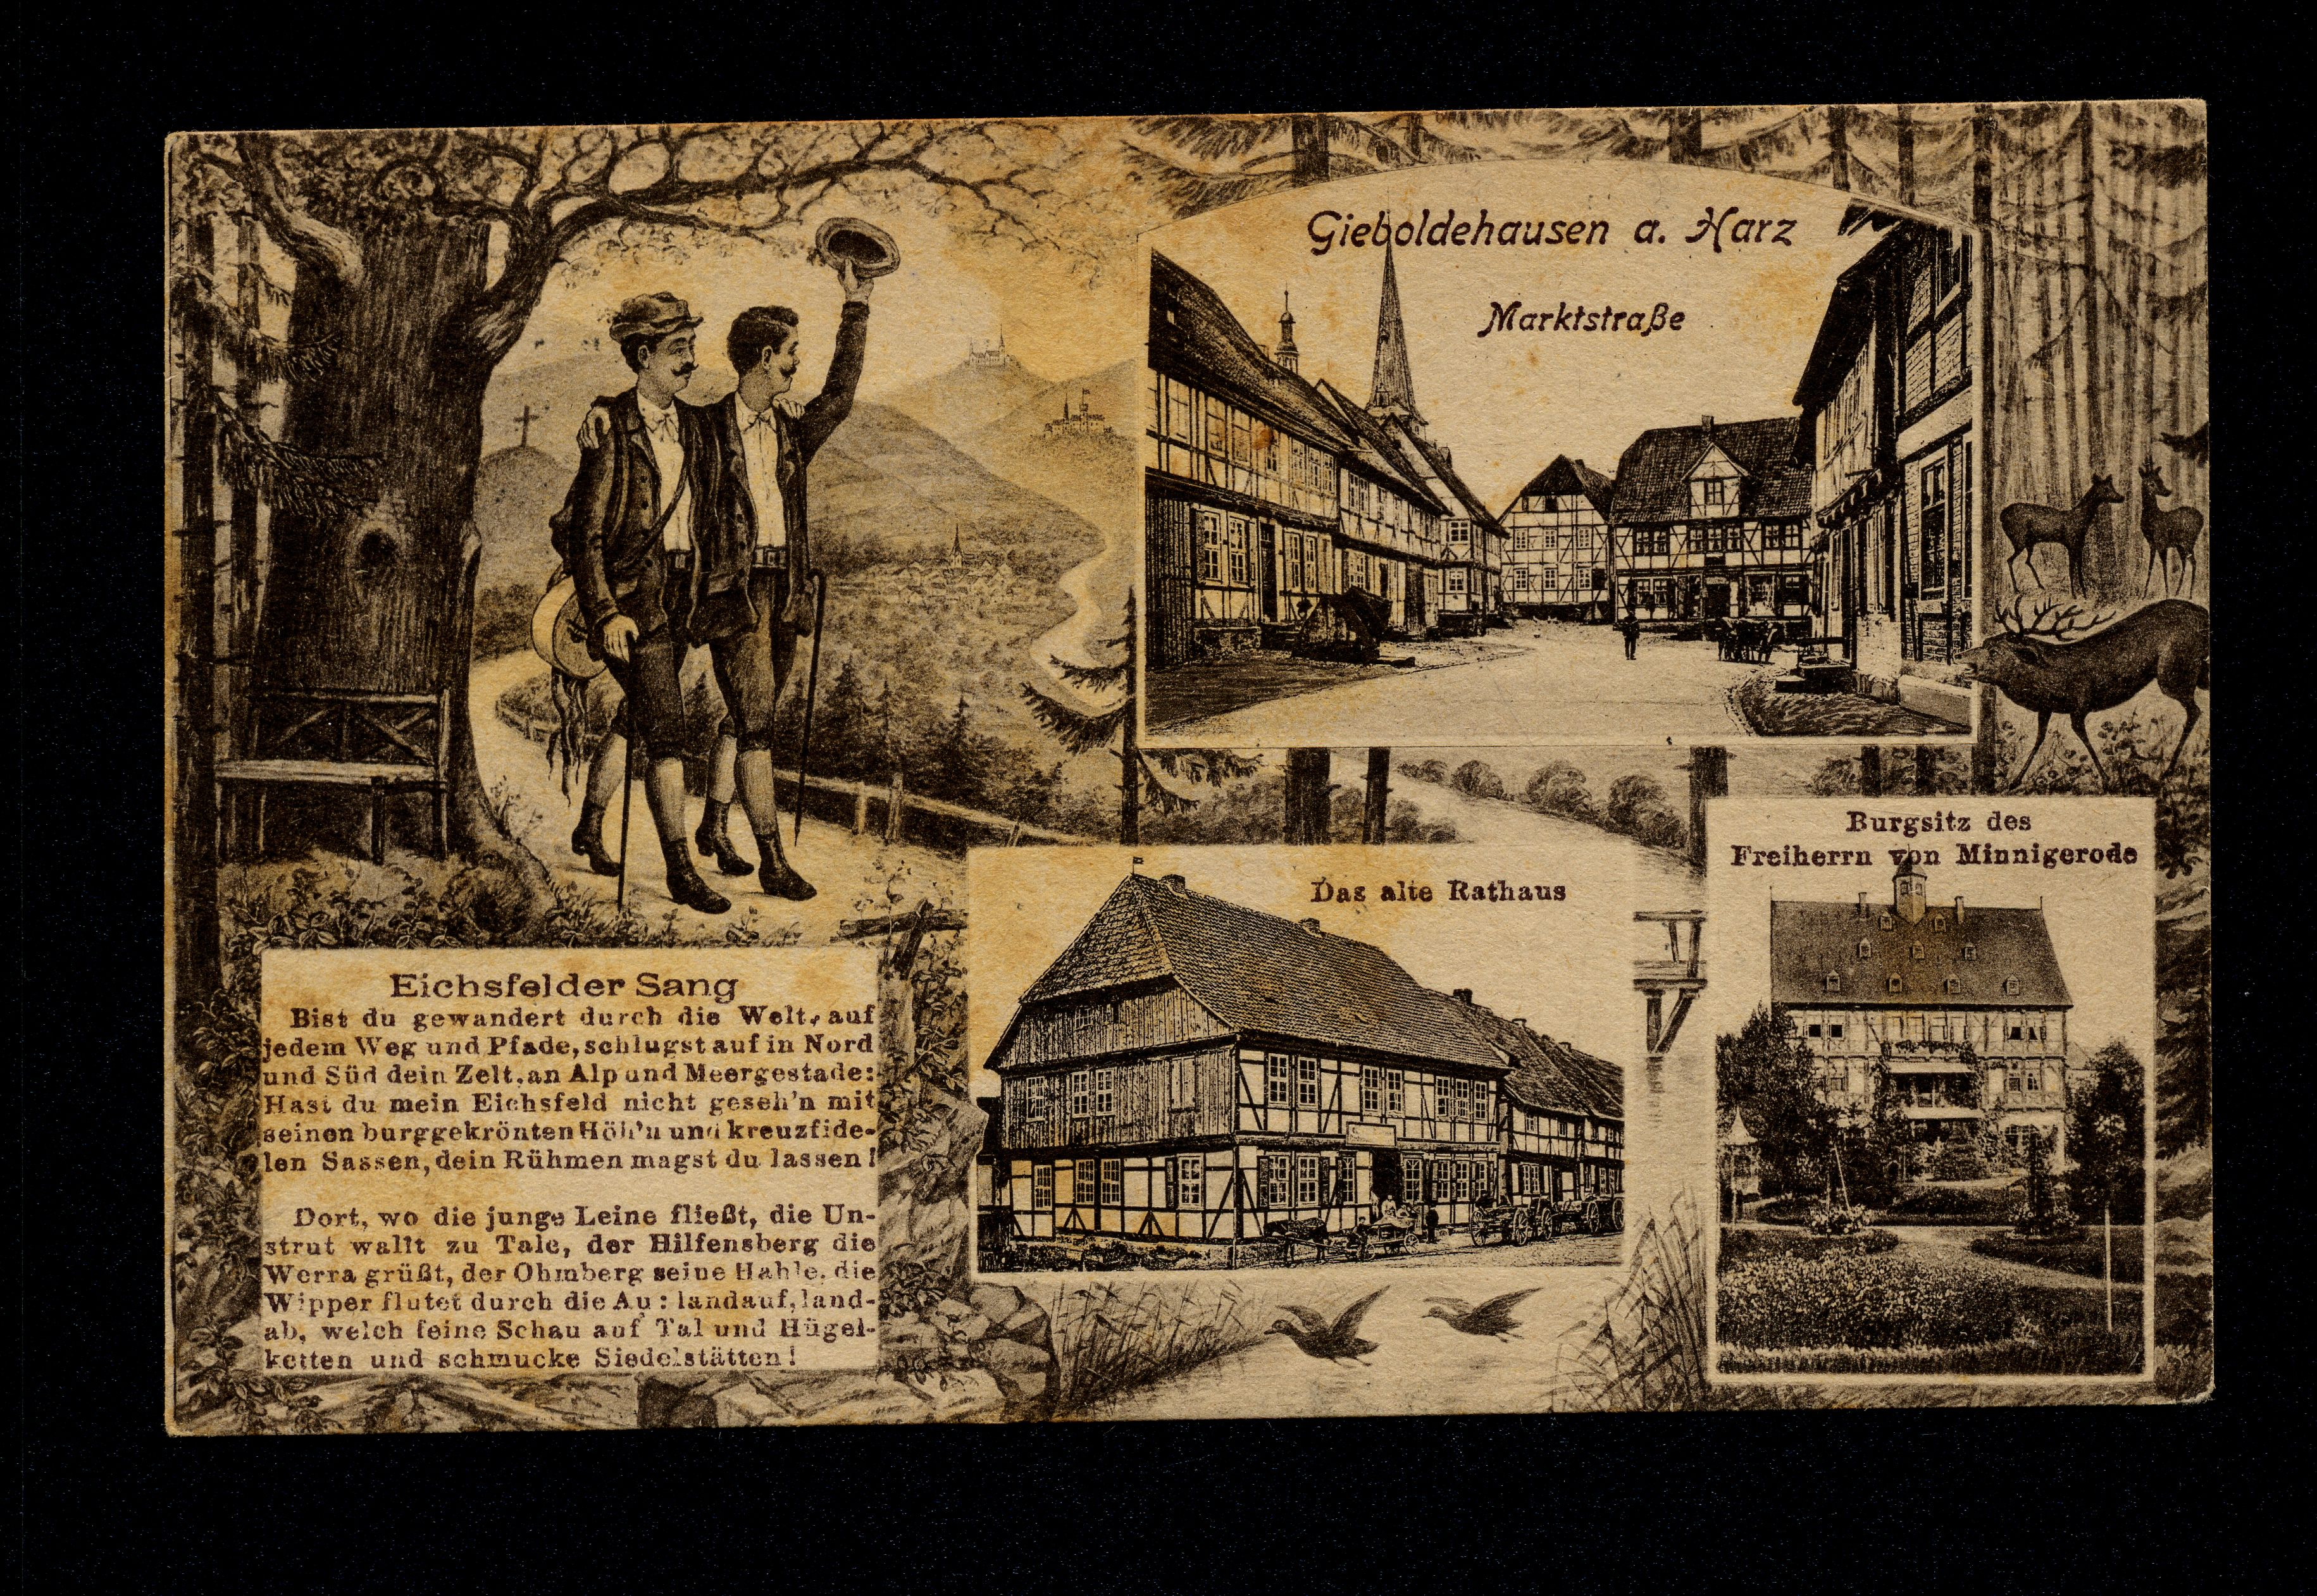 Gieboldehausen a. Harz
Marktstraße
Burgsitz des
Freiherrn von Minnigerode
Das alte Rathaus
Eichsfelder Sang
Bist du gewandert durch die Welt, auf
jedem Weg und Pfade, schlugst auf in Nord
und Süd dein Zelt, an Alp und Meergestade:
Hast du mein Eichsfeld nicht geseh'n mit
seinen burggekrönten Höh'n und kreuzfide-
len Sassen, dein Rühmen magst du lassen!
Dort, wo die junge Leine fließt, die Un-
strut wallt zu Tale, der Hilfensberg die
Werra grüßt, der Ohmberg seine Hahle, die
Wipper flutet durch die Au: landauf, land-
ab, welch feine Schau auf Tal und Hügel-
ketten und schmucke Siedelstätten!